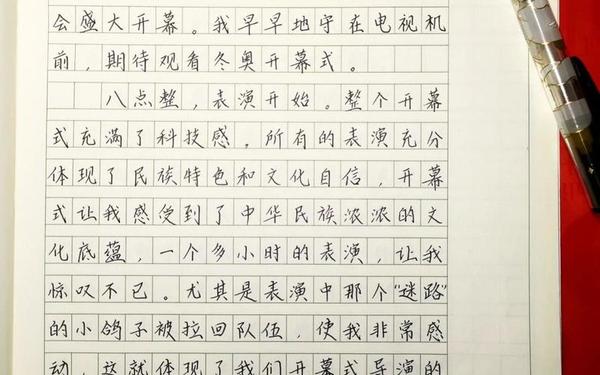 会盛大开幕。我早早地守在电视机
前，期待观看冬奥开幕式。
八点整，表演开始。整个开幕
式充满了科技感。所有的表演充分
体现了民族特色和文化自信，开幕
式让我感受到了中华民族浓浓的文
化底蕴，一个多小时的表演，让我
惊叹不已。尤其是表演中那个“迷路”
的小鸽子被拉回队伍，使我非常感
动，这就体现了我们开幕式导演的